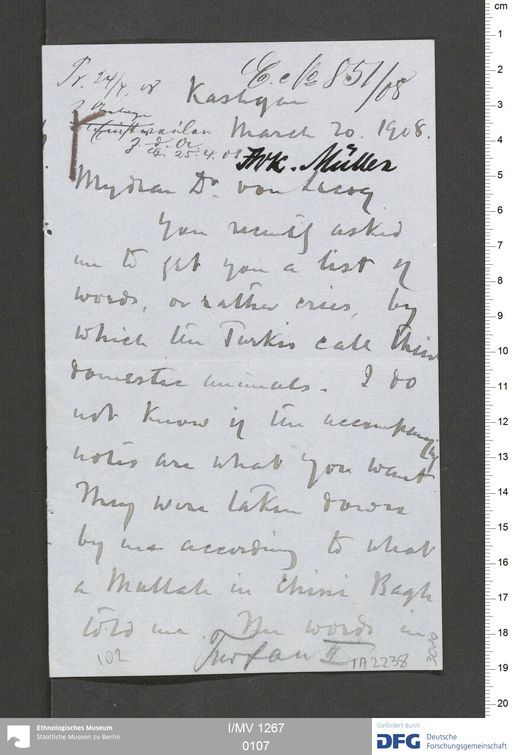 Pr. 24/4. 08
E. No 851/08
Kashgar
March 20. 1908.
einstweilen
z. d. A.
25. 4. 08
FWK. Müller
My dear Dr von Lecoq
You recently asked
me to get you a list of
words, or rather cries, by
which the Turkis call their
domestic animals. I do
not know if the accompanying
notes are what you want.
They were taken down
by me according to what
a Mullah in Chini Bagh
told me. The words in
102
Turfan II
TA 2238
Ethnologisches Museum
Staatliche Museen zu Berlin
I/MV 1267
0107
Gefördert durch
DFG Deutsche
Forschungsgemeinschaft
cm
1
2
3
4
5
6
7
8
9
10
11
12
13
14
15
16
17
18
19
20